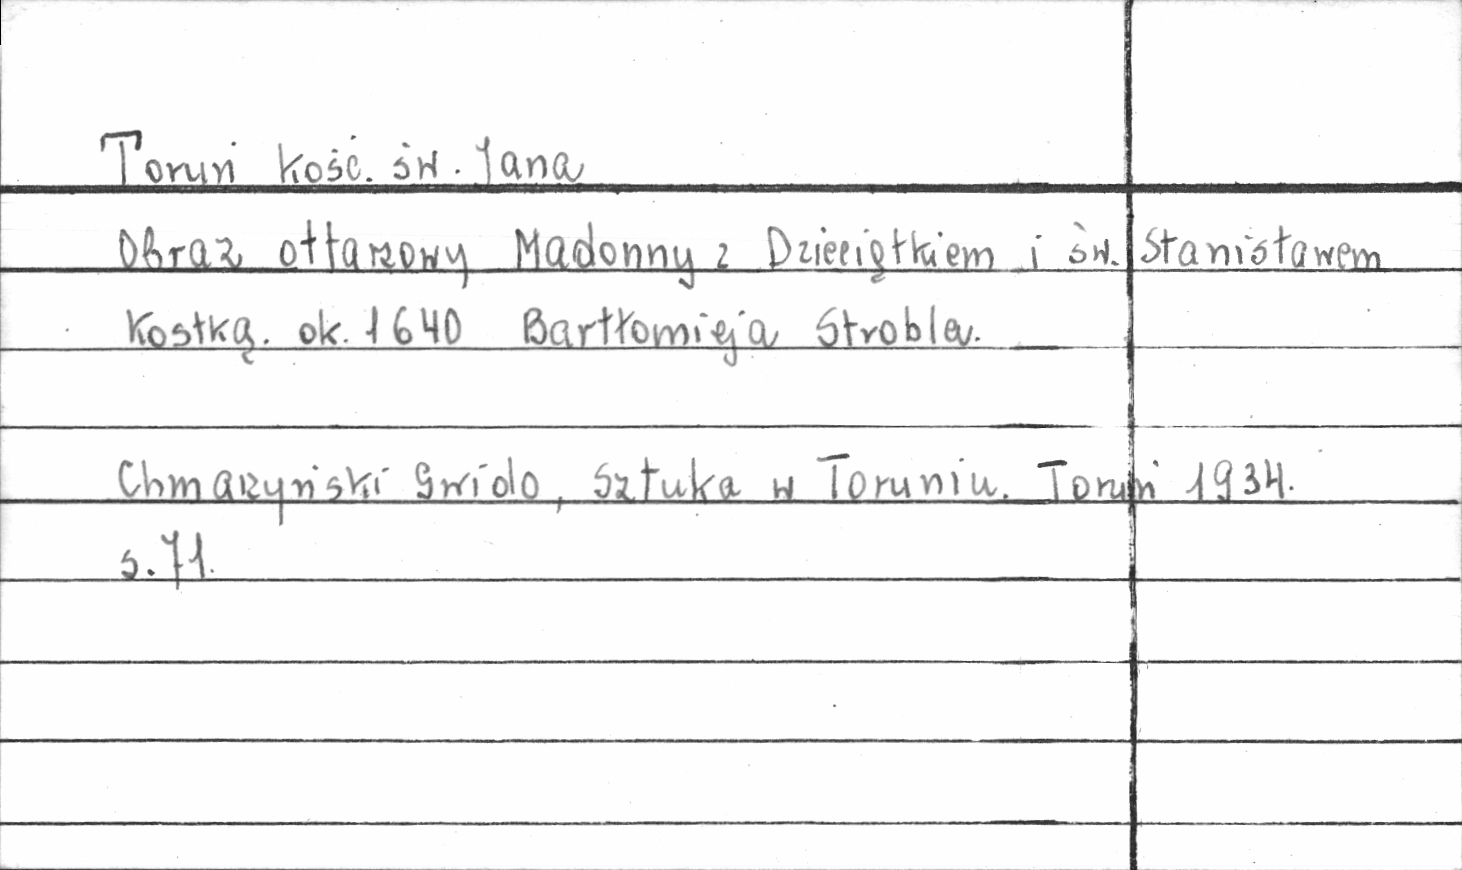 Toruń kość. św. Jana
Obraz ołtarzowy Madonny z Dzieciątkiem i św. Stanisławem
Kostką. ok. 1640 Bartłomieja Strobla.
Chmarzyński Gwido, Sztuka w Toruniu. Toruń 1934.
s. 71.